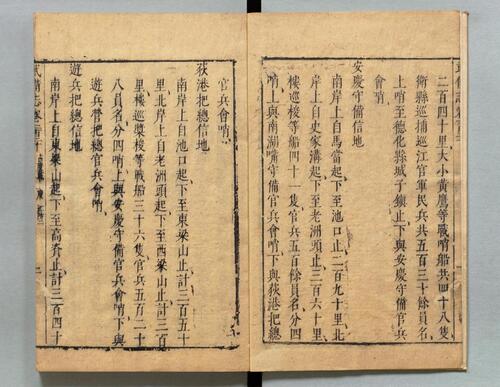 二百四十里大小黃鷹等戰哨船共四十八隻
衛縣巡捕巡江官軍民兵共五百三十餘員名
上哨至德化縣城子鎮止下與安慶守備官兵
會哨
安慶守備信地
南岸上自馬當起下至池口止二百九十里北
岸上自史家溝起下至老洲頭止三百六十里
樓巡槳梭等船四十一隻官兵五百餘員名分四
哨上與南湖嘴守備官兵會哨下與荻港把總
官兵會哨
荻港把總信地
南岸上自池口起下至東梁山止計三百五十
里北岸上自老洲頭起下至西梁山止計三百
里樓巡槳梭等戰船三十六隻官兵五百二十
八員名分四哨上與安慶守備官兵會哨下與
遊兵營把總官兵會哨
遊兵把總信地
南岸上自東梁山起下至高資止計三百四十